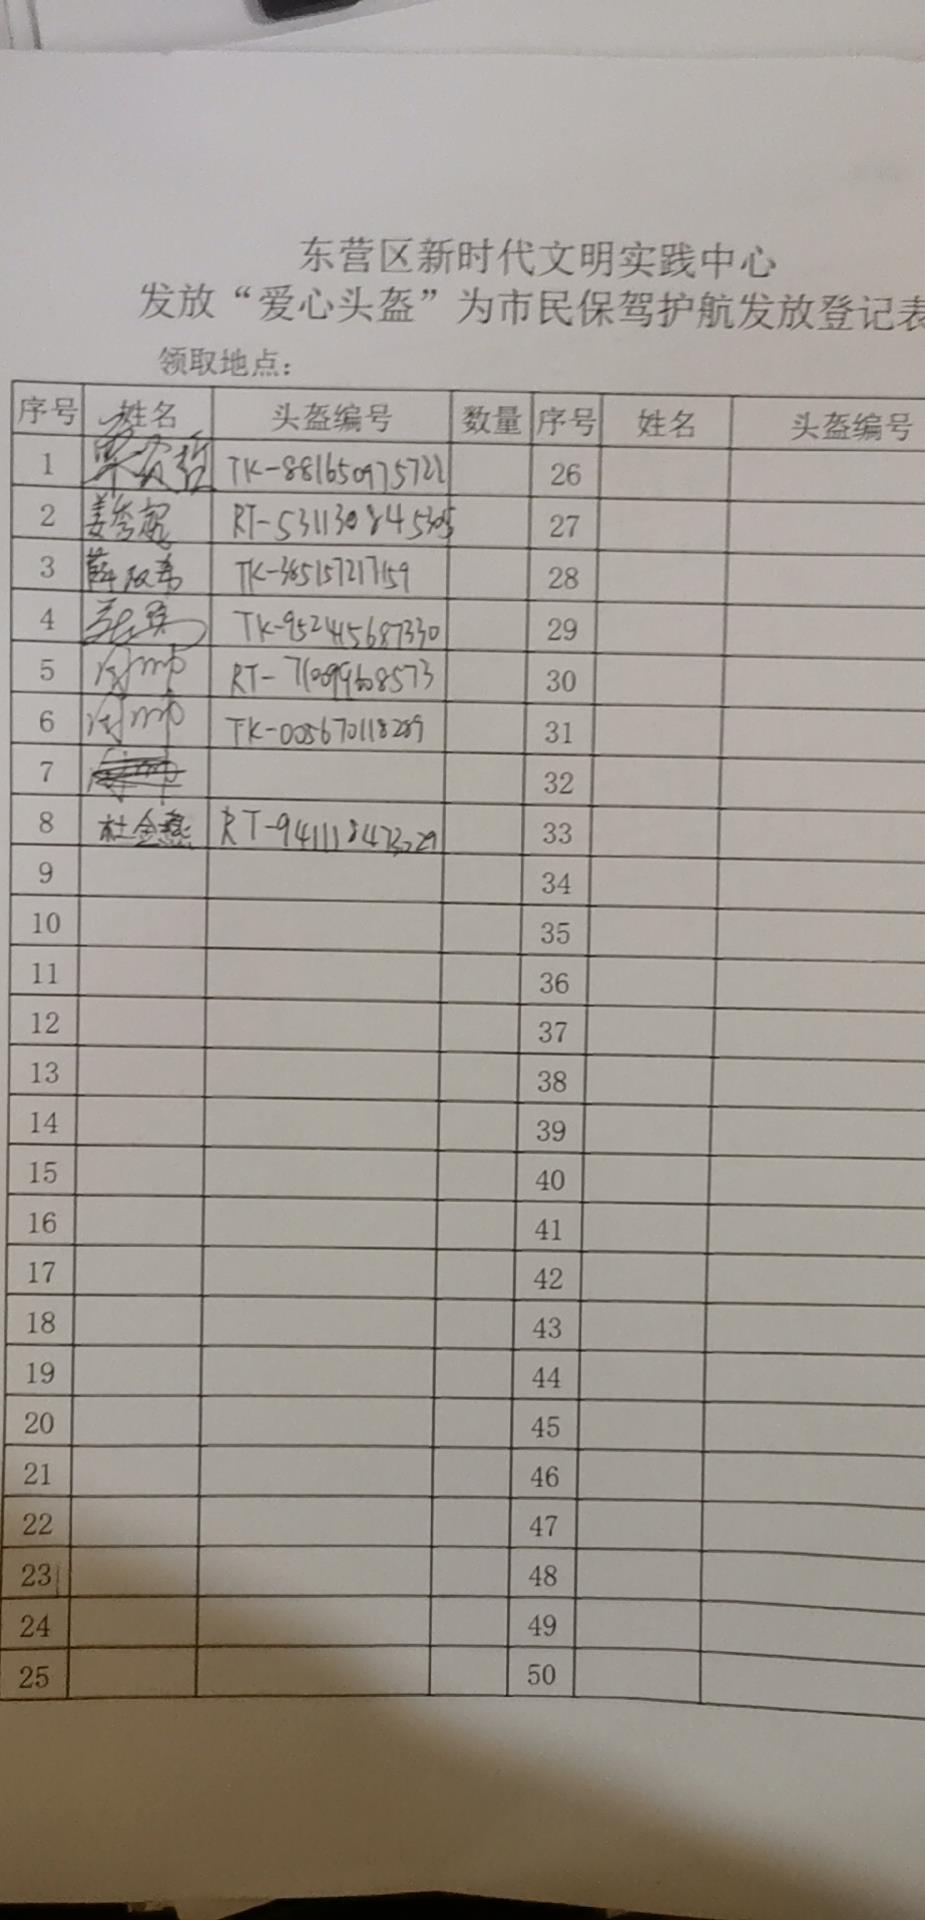 东营区新时代文明实践中心
发放“爱心头盔”为市民保驾护航发放登记表
领取地点：
序号 姓名 头盔编号 数量 序号 姓名 头盔编号
1 TK-881650975722 26
2 姜秀妮 RT-531130845305 27
3 薛 TK-385157217159 28
4 TK-952415687330 29
5 RT- 30
6 TK-005670118289 31
7 32
8 杜金燕 RT-941118473229 33
9 34
10 35
11 36
12 37
13 38
14 39
15 40
16 41
17 42
18 43
19 44
20 45
21 46
22 47
23 48
24 49
25 50